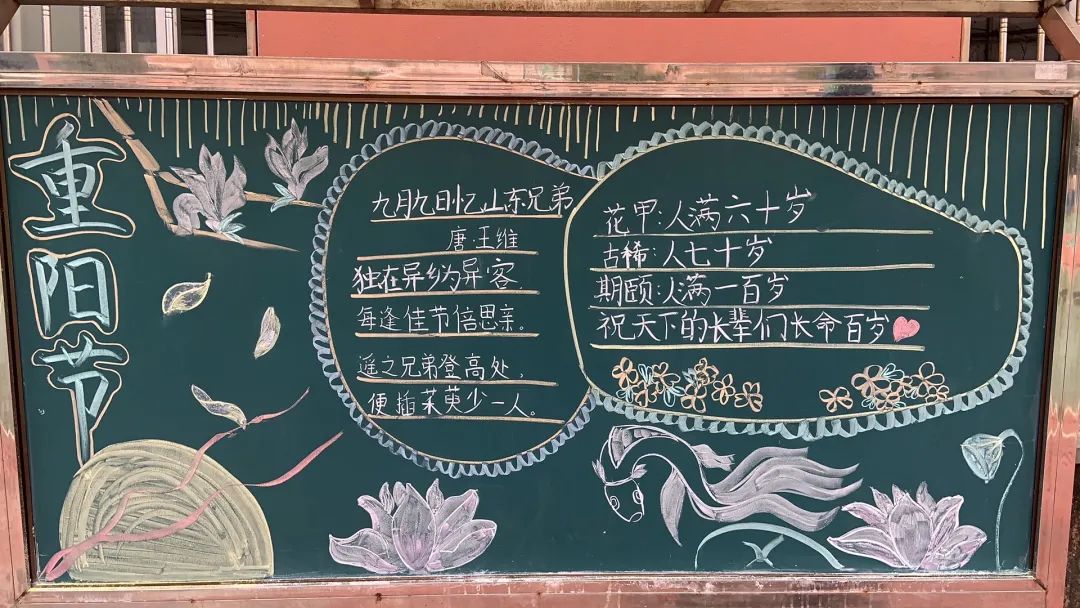 重阳节
九月九日忆山东兄弟
唐·王维
独在异乡为异客，
每逢佳节倍思亲。
遥之兄弟登高处，
便插茱萸少一人。
花甲：人满六十岁
古稀：人七十岁
期颐：人满一百岁
祝天下的长辈们长命百岁